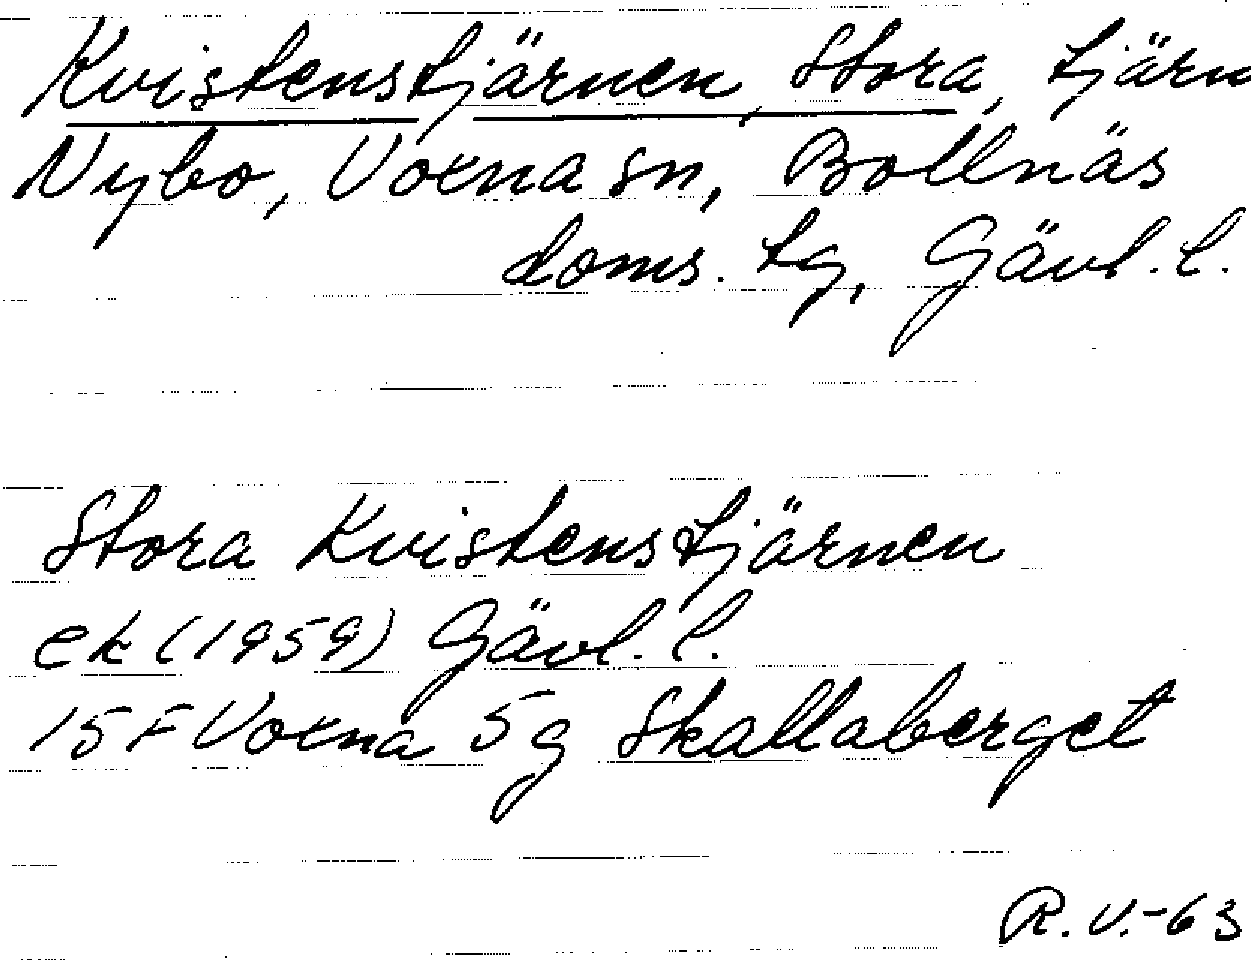 Kvistenstjärnen, Stora, tjärn
Nybo, Voxna sn, Bollnäs
doms. tg, Gävl. l.
Stora Kvistenstjärnen
ek (1959) Gävl. l.
15 F Voxna 5g Skallaberget
R.V.-63